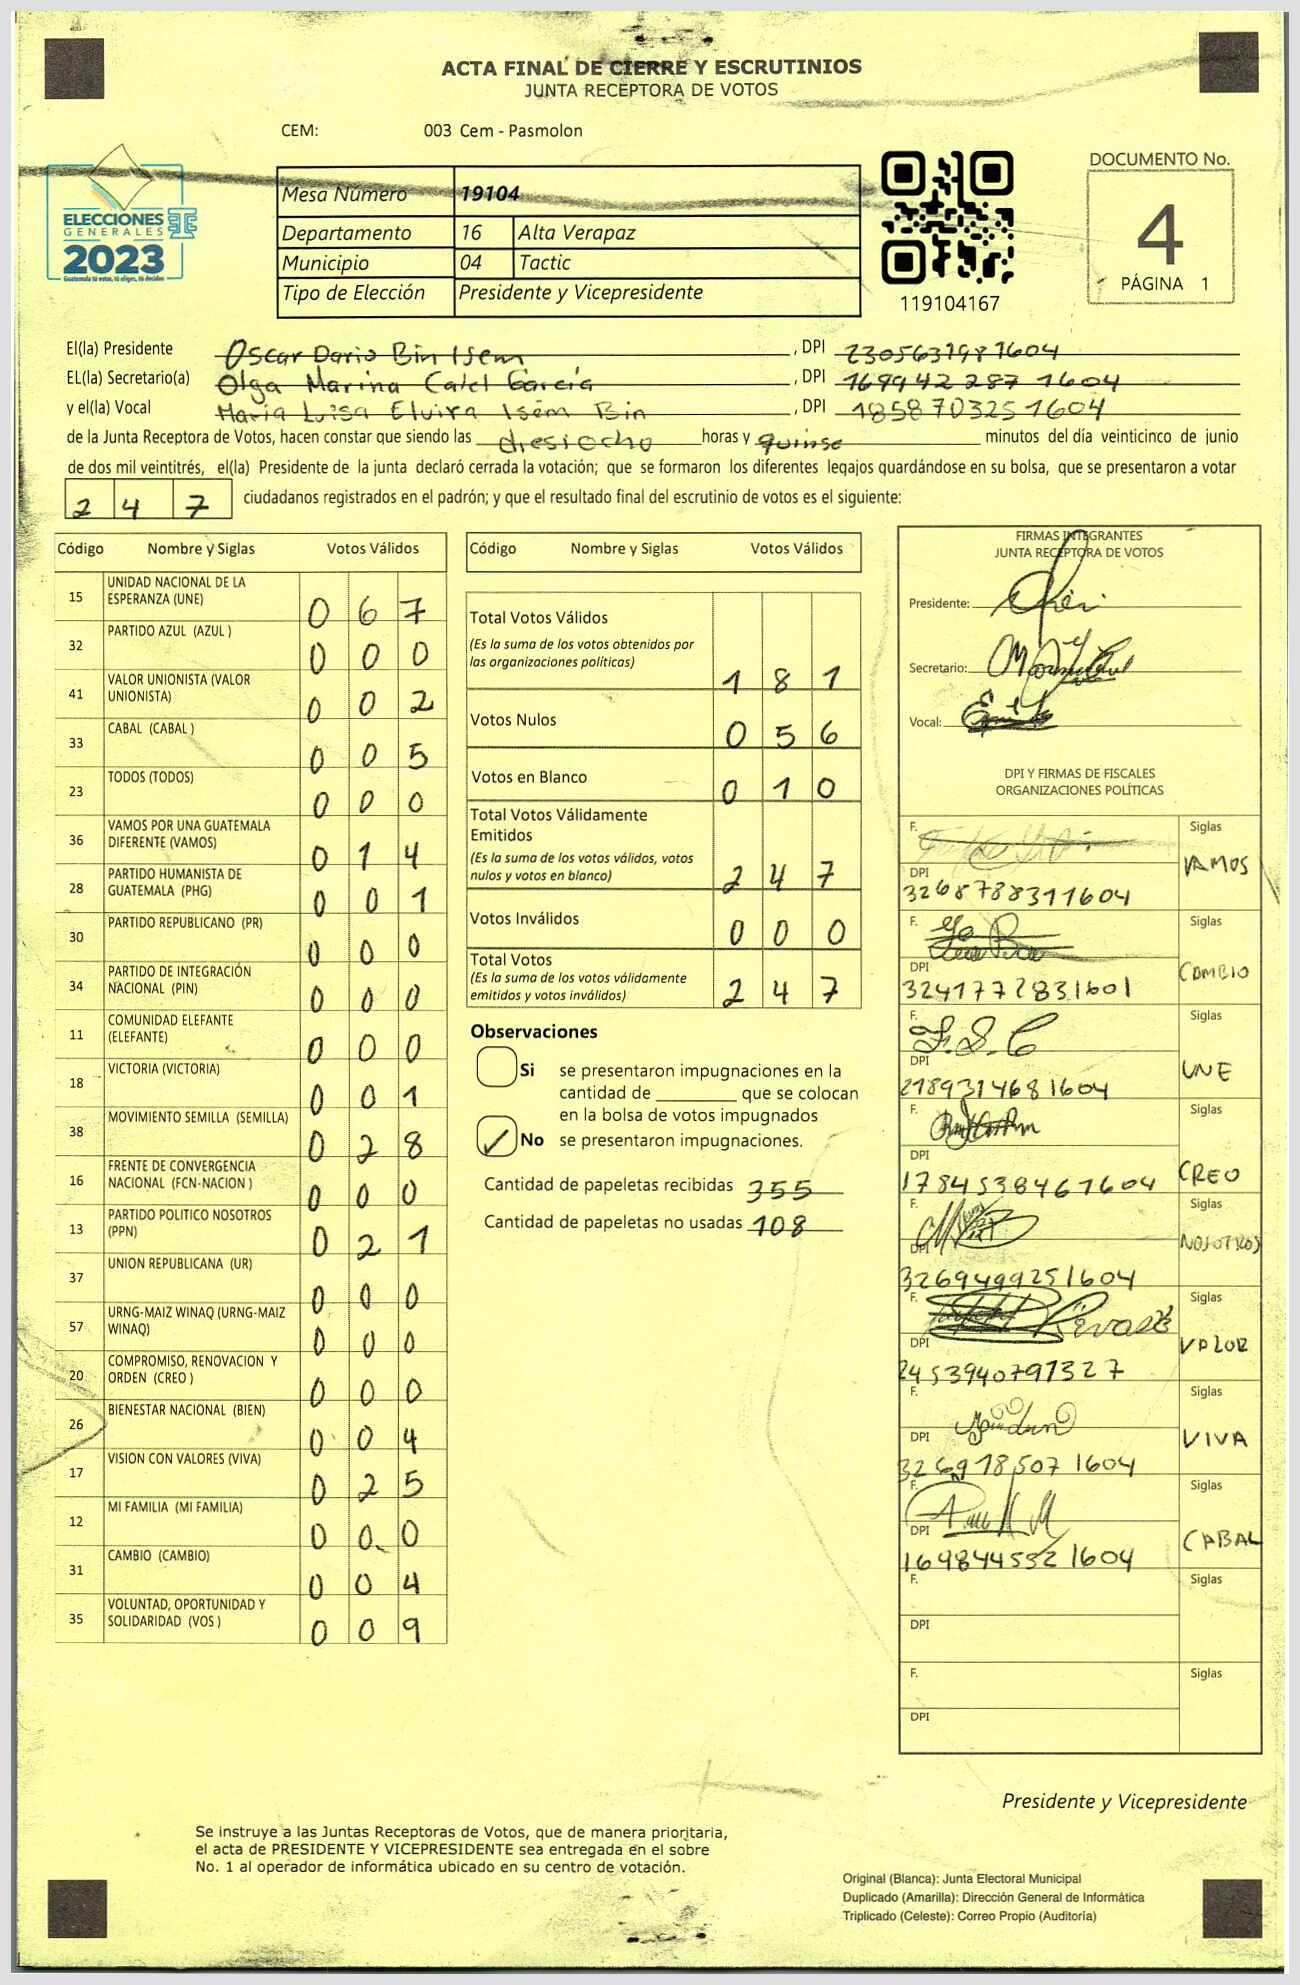 ACTA FINAL DE CIERRE Y ESCRUTINIOS
JUNTA RECEPTORA DE VOTOS
CEM: 003 Cem - Pasmolon
ELECCIONES
GENERALES
2023
Guatemala tú votas, tú eliges, tú decides
Mesa Número 19104
Departamento 16 Alta Verapaz
Municipio 04 Tactic
Tipo de Elección Presidente y Vicepresidente
119104167
DOCUMENTO No.
4
PÁGINA 1
El(la) Presidente Oscar Dario Bin Isem, DPI 2305637981604
EL(la) Secretario(a) Olga Marina Calel García, DPI 169942287 1604
y el(la) Vocal Maria Luisa Elvira Isém Bin, DPI 1858703251604
de la Junta Receptora de Votos, hacen constar que siendo las diesiocho horas y quinse minutos del día veinticinco de junio
de dos mil veintitrés, el(la) Presidente de la junta declaró cerrada la votación; que se formaron los diferentes legajos quardándose en su bolsa, que se presentaron a votar
2 4 7 ciudadanos registrados en el padrón; y que el resultado final del escrutinio de votos es el siguiente:
Código Nombre y Siglas Votos Válidos
15 UNIDAD NACIONAL DE LA ESPERANZA (UNE) 0 6 7
32 PARTIDO AZUL (AZUL ) 0 0 0
41 VALOR UNIONISTA (VALOR UNIONISTA) 0 0 2
33 CABAL (CABAL ) 0 0 5
23 TODOS (TODOS) 0 0 0
36 VAMOS POR UNA GUATEMALA DIFERENTE (VAMOS) 0 1 4
28 PARTIDO HUMANISTA DE GUATEMALA (PHG) 0 0 1
30 PARTIDO REPUBLICANO (PR) 0 0 0
34 PARTIDO DE INTEGRACIÓN NACIONAL (PIN) 0 0 0
11 COMUNIDAD ELEFANTE (ELEFANTE) 0 0 0
18 VICTORIA (VICTORIA) 0 0 1
38 MOVIMIENTO SEMILLA (SEMILLA) 0 2 8
16 FRENTE DE CONVERGENCIA NACIONAL (FCN-NACION ) 0 0 0
13 PARTIDO POLITICO NOSOTROS (PPN) 0 2 1
37 UNION REPUBLICANA (UR) 0 0 0
57 URNG-MAIZ WINAQ (URNG-MAIZ WINAQ) 0 0 0
20 COMPROMISO, RENOVACION Y ORDEN (CREO ) 0 0 0
26 BIENESTAR NACIONAL (BIEN) 0 0 4
17 VISION CON VALORES (VIVA) 0 2 5
12 MI FAMILIA (MI FAMILIA) 0 0 0
31 CAMBIO (CAMBIO) 0 0 4
35 VOLUNTAD, OPORTUNIDAD Y SOLIDARIDAD (VOS ) 0 0 9
Código Nombre y Siglas Votos Válidos
Total Votos Válidos
(Es la suma de los votos obtenidos por
las organizaciones políticas) 1 8 1
Votos Nulos 0 5 6
Votos en Blanco 0 1 0
Total Votos Válidamente
Emitidos
(Es la suma de los votos válidos, votos
nulos y votos en blanco) 2 4 7
Votos Inválidos 0 0 0
Total Votos
(Es la suma de los votos válidamente
emitidos y votos inválidos) 2 4 7
Observaciones
Si se presentaron impugnaciones en la
cantidad de ________ que se colocan
en la bolsa de votos impugnados
✓ No se presentaron impugnaciones.
Cantidad de papeletas recibidas 355
Cantidad de papeletas no usadas 108
FIRMAS INTEGRANTES
JUNTA RECEPTORA DE VOTOS
Presidente:
Secretario:
Vocal:
DPI Y FIRMAS DE FISCALES
ORGANIZACIONES POLÍTICAS
F. Siglas VAMOS
DPI 3268788311604
F. Siglas CAMBIO
DPI 3241772831601
F. F.S.C Siglas UNE
DPI 2189314681604
F. Siglas CREO
DPI 1784538461604
F. Siglas NOSOTROS
DPI 3269499251604
F. Siglas VALOR
DPI 2453940791327
F. Siglas VIVA
DPI 3269185071604
F. Siglas CABAL
DPI 1698445521604
F. Siglas
DPI
F. Siglas
DPI
Presidente y Vicepresidente
Se instruye a las Juntas Receptoras de Votos, que de manera prioritaria,
el acta de PRESIDENTE Y VICEPRESIDENTE sea entregada en el sobre
No. 1 al operador de informática ubicado en su centro de votación.
Original (Blanca): Junta Electoral Municipal
Duplicado (Amarilla): Dirección General de Informática
Triplicado (Celeste): Correo Propio (Auditoría)